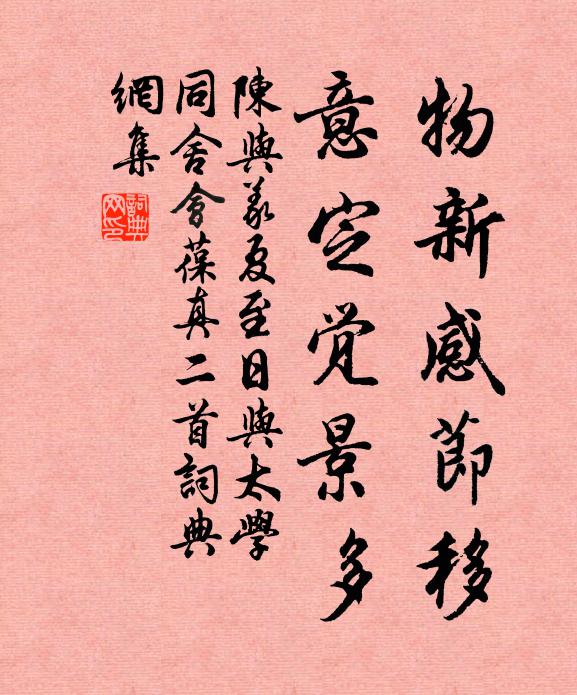 物新感節移
意定覚景多
陳與義夏至日與太學
同舍會葆真二首詞典
網集
詞典
网印